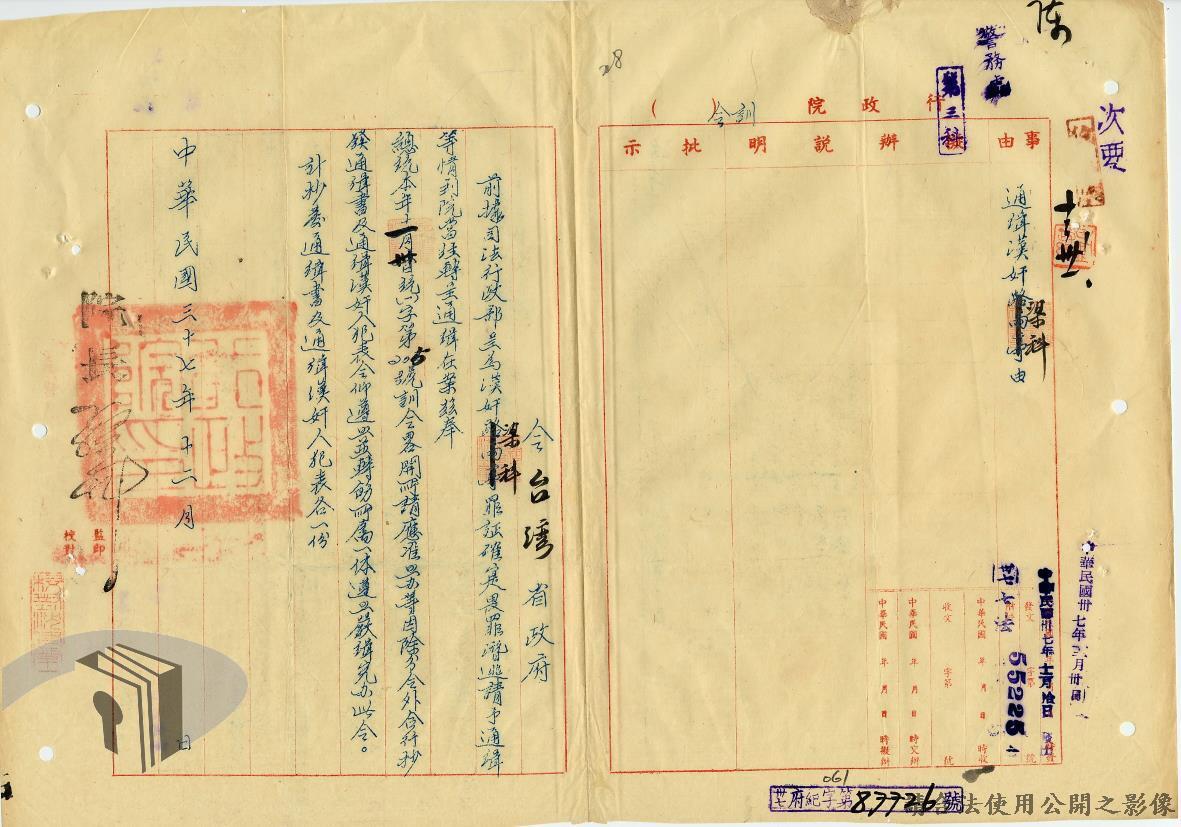 次要
警務處
第三科
行政院( )
訓令
事由
擬辦
說明
批示
通緝漢奸梁科事由
中華民國卅七年
卅七法
55225
中華民國 年 月 日 時收
收文 字第 號
中華民國 年 月 日 時交辦
中華民國 年 月 日 時擬辦
061
卅七府紀字第87726號
28
令台灣省政府
前據司法行政部呈為漢奸梁科罪証確實畏罪潛逃請予通緝
等情到院當經轉呈通緝在案茲奉
總統本年十一月卅日統一字第205號訓令畧開所請應准照办等因除分令外合行抄
發通緝書及通緝漢奸人犯表令仰遵照並轉飭所屬一体遵照嚴緝究办此令。
計抄發通緝書及通緝漢奸人犯表各一份
中華民國三十七年十二月 日
院長
監印
校對
請合法使用公開之影像